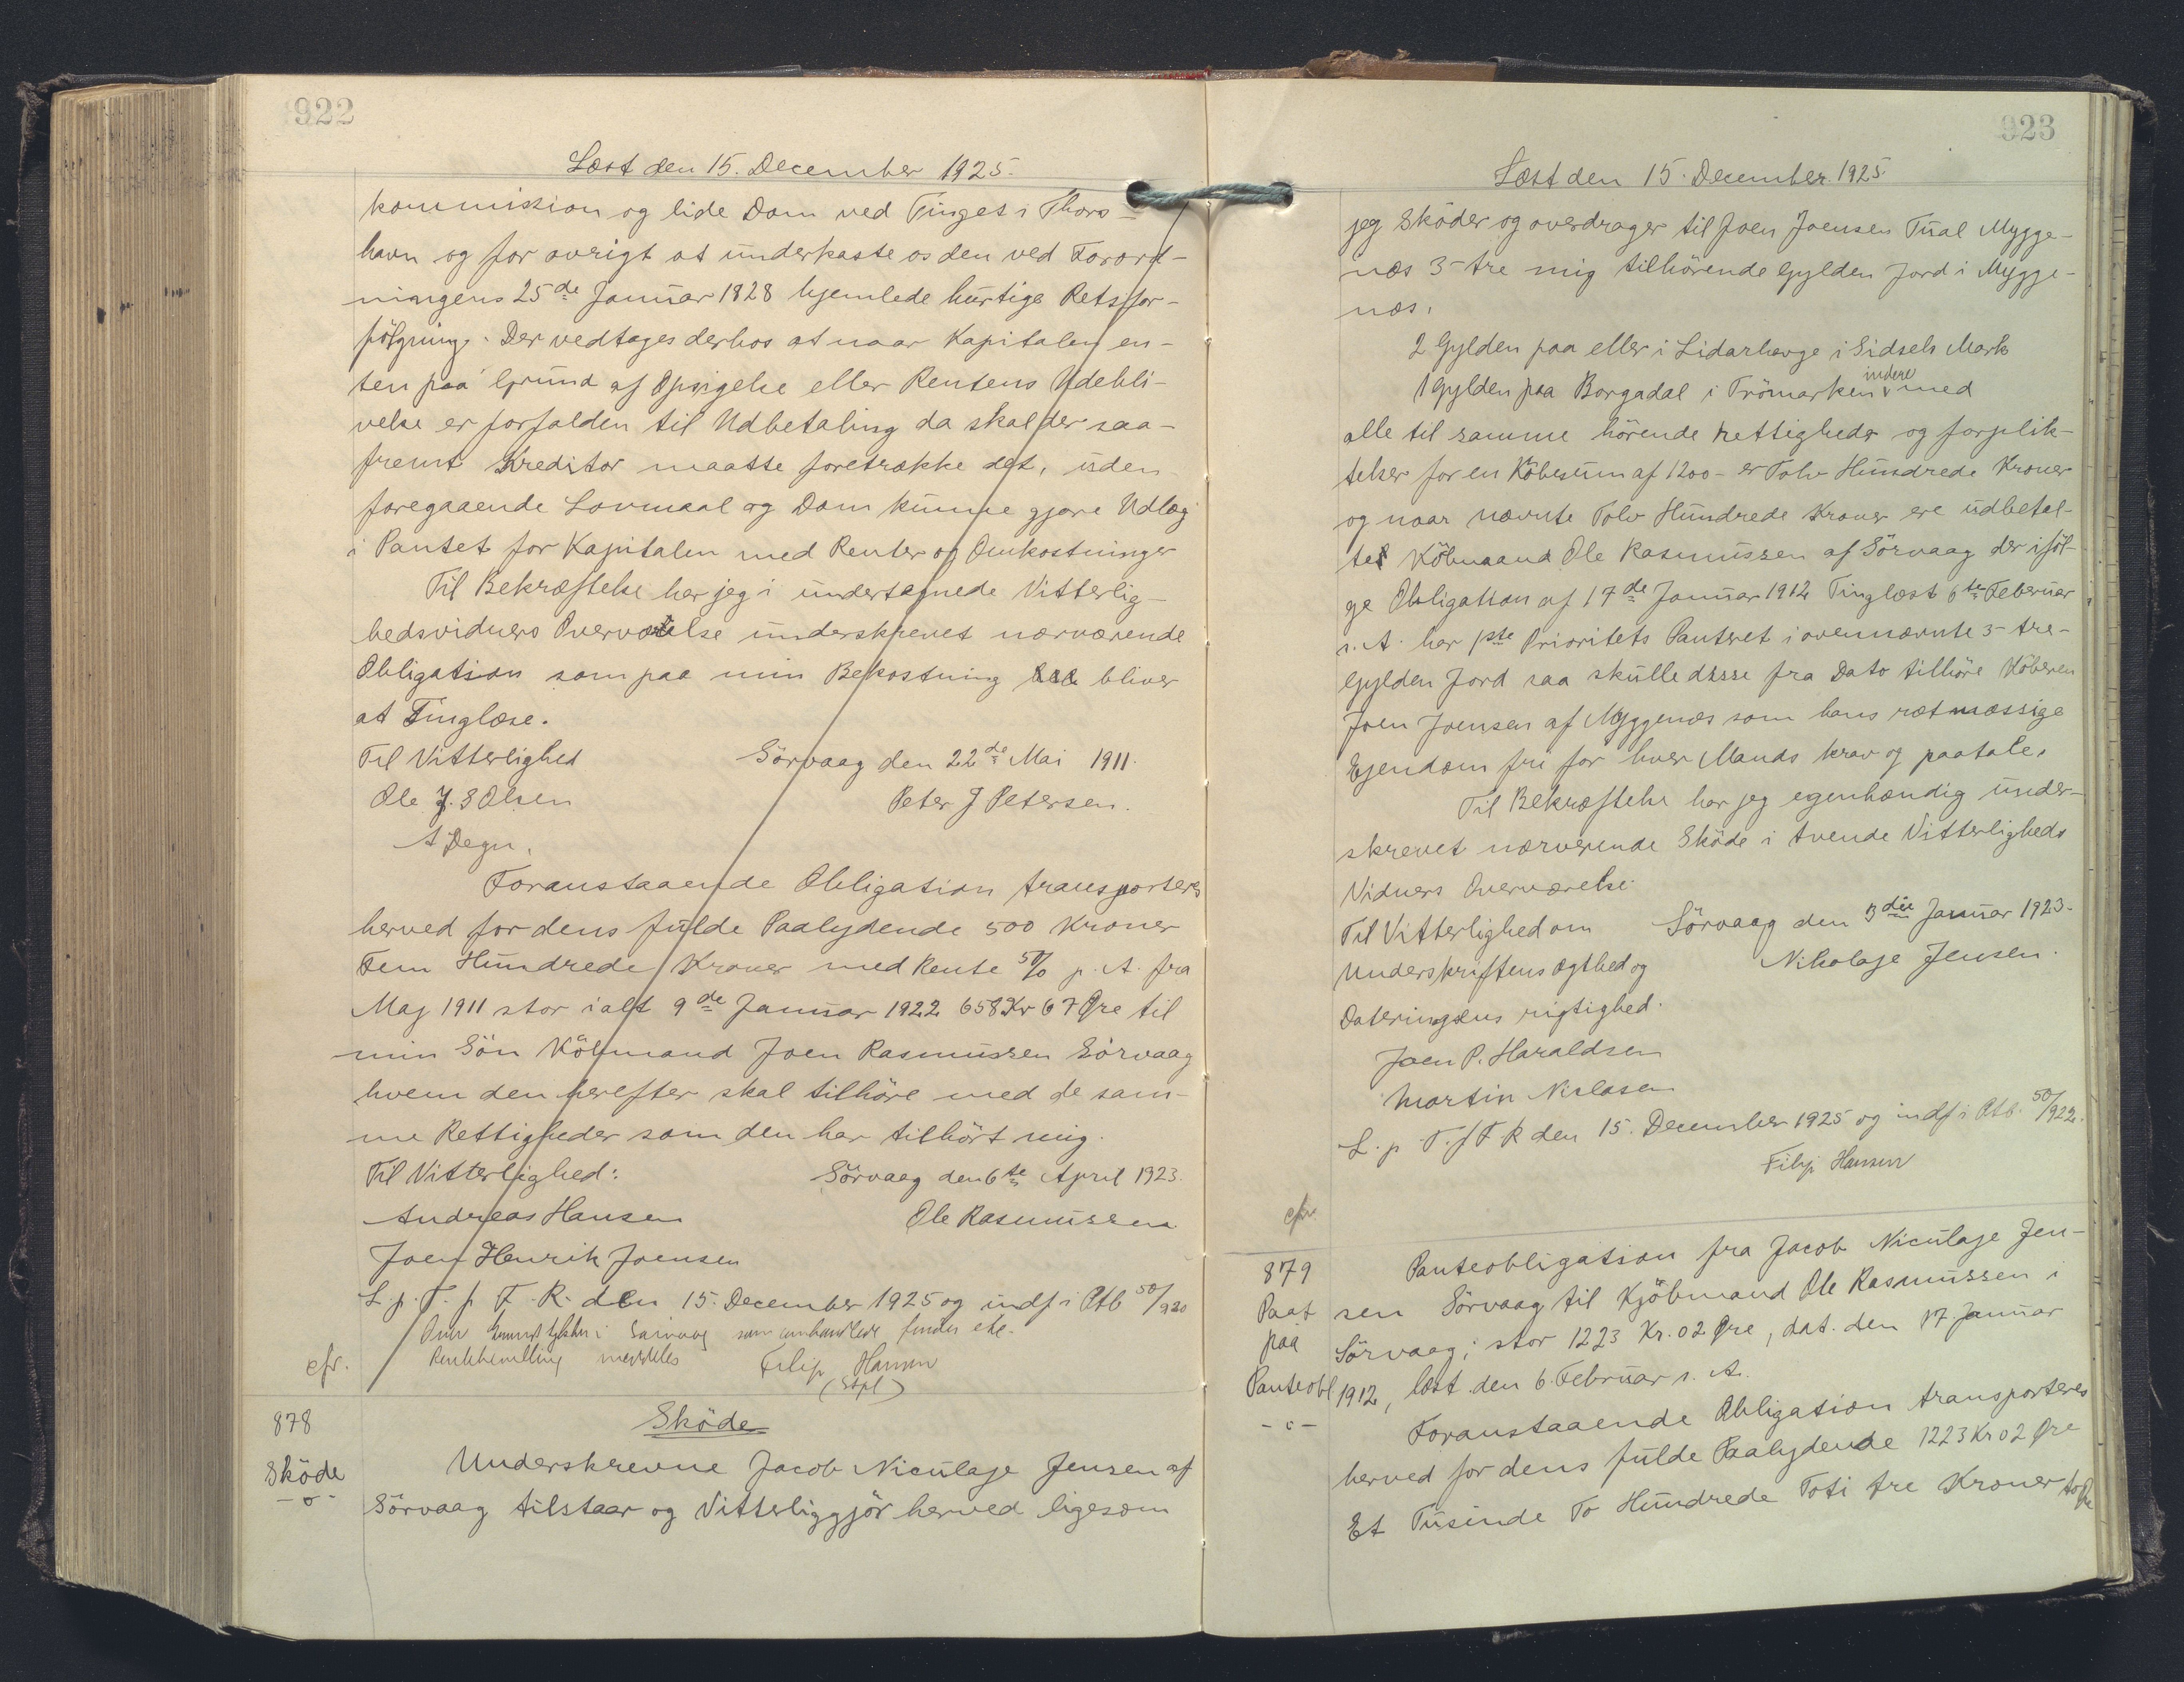 922
Læst den 15. December 1925.
kommission og lide Dom ved Tinget i Thors-
havn og for øvrigt at underkaste os den ved Forord-
ningens 25de Januar 1828 hjemlede hurtige Retsfor-
følgning. Der vedtages derhos at naar Kapitalen en-
ten paa Grund af Opsigelse eller Rentens Udebli-
velse er forfalden til Udbetaling da skal der saa-
fremt Kreditor maatte foretrække det, uden
foregaaende Lovmaal og Dom kunne gjøre Udlæg
i Pantet for Kapitalen med Renter og Omkostninger
Til Bekræftelse har jeg i undertegnede Vitterlig-
hedsvidners Overværelse underskrevet nærværende
Obligation som paa min Bekostning bliver
at Tinglæse.
Til Vitterlighed Sörvaag den 22de Mai 1911.
Ole J. S Olsen Peter J Petersen.
A Degn.
Foranstaaende Obligation transporteres
herved for dens fulde Paalydende 500 Kroner
Fem Hundrede Kroner med Rente 5% p. A. fra
Maj 1911 stor ialt 9de Januar 1922 658 Kr 67 Øre til
min Sön Köbmand Joen Rasmussen Sörvaag
hvem den herefter skal tilhöre med de sam-
me Rettigheder som den har tilhört mig.
Til Vitterlighed: Sörvaag den 6te April 1923.
Andreas Hansen Ole Rasmussen
Joen Henrik Joensen
L. p. T. f F. R. den 15. December 1925 og indf i Ptb 50/920
Om i Sörvaag som omhandlede findes
meddeles Filip Hansen
cfr.
878
Sköde
Sköde
-o-
Underskrevne Jacob Niculaje Jensen af
Sörvaag tilstaar og Vitterliggjör herved ligesom
923
Læst den 15. December 1925.
jeg Sköder og overdrager til Joen Joensen Tual Mygge-
næs 3- tre mig tilhörende Gylden Jord i Mygge-
næs.
2 Gylden paa eller i Lidarhavge i Sidsels Mark
1 Gylden paa Borgadal i Trömarken indere med
alle til samme hörende rettigheder og forplik-
telser for en Köbesum af 1200- er Tolv Hundrede Kroner
og naar nævnte Tolv Hundrede Kroner ere udbetal-
tes Köbmand Ole Rasmussen af Sörvaag der iföl-
ge Obligation af 17de Januar 1912 Tinglæst 6te Februar
s. A. har 1ste Prioritets Panteret i ovennævnte 3- tre-
Gylden Jord saa skulle disse fra Dato tilhöre Köberen
Joen Joensen af Myggenæs som hans retmæssige
Ejendom fri for hver Mands krav og paatale.
Til Bekræftelse har jeg egenhændig under-
skrevet nærværende Sköde i tvende Vitterligheds
Vidners Overværelse.
Til Vitterlighed om Sörvaag den 3die Januar 1923.
Underskriftens ægthed og Nikolaje Jensen.
Dateringens rigtighed.
Joen P. Haraldsen
Martin Niclasen
L. p T. f F R den 15. December 1925 og indf i Ptb. 50/922.
Filip Hansen
cfr.
879
Paat
paa
Panteobl
-o-
Panteobligation fra Jacob Niculaje Jen-
sen Sörvaag til Kjöbmand Ole Rasmussen i
Sörvaag; stor 1223 Kr. 02 Øre, dat. den 17 Januar
1912, læst den 6. Februar s. A.
Foranstaaende Obligation transporteres
herved for dens fulde Paalydende 1223 Kr 02 Øre
Et Tusinde To Hundrede Toti tre Kroner to Øre